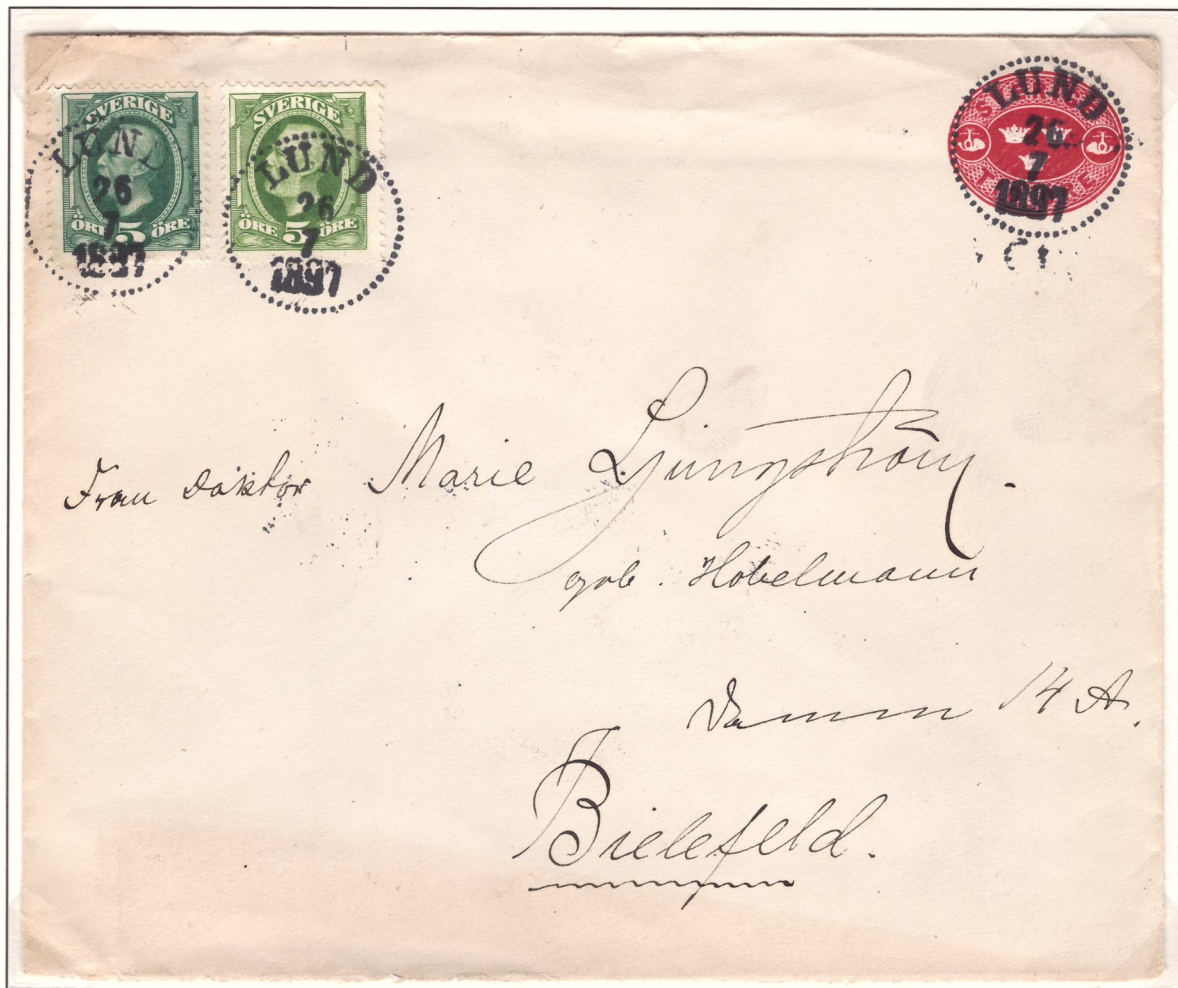 SVERIGE
ÖRE 5 ÖRE
LUND
26
7
1897
SVERIGE
ÖRE 5 ÖRE
LUND
26
7
1897
LUND
26
7
1897
Frau Doktor Marie Ljungström.
geb. Hobelmann
Damm 14 A.
Bielefeld.